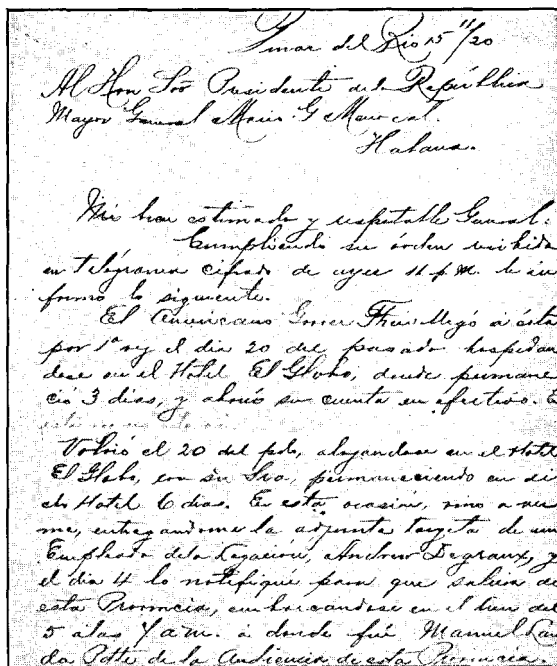 Pinar del Rio 15 11/20
Al Hon Sor Presidente de la República
Mayor General Mario G Menocal.
Habana.
Mi bien estimado y respetable General:
Cumpliendo su órden recibida
en telégrama cifrado de ayer 11 p.m. le in
formo lo siguiente.
El Americano llegó á ésta
por 1ª vez el dia 20 del pasado hospedan
dose en el Hotel El Globo, donde permane
ció 3 dias, y abonó su cuenta en efectivo. E
Volvió el 20 del pdo, alojandose en el Hotel
El Globo, con su Sra, permaneciendo en di
cho Hotel 6 dias. En esta ocasión, vino a ver
me, entregandome la adjunta targeta de un
Empleado de la Legación, Andrew Degraux, y
el dia 4 lo notifiqué para que saliera de
esta Provincia, embarcandose en el tren del
5 a las 7 a.m. á donde fué Manuel Lan
da Pdtte de la Audiencia de esta Provincia